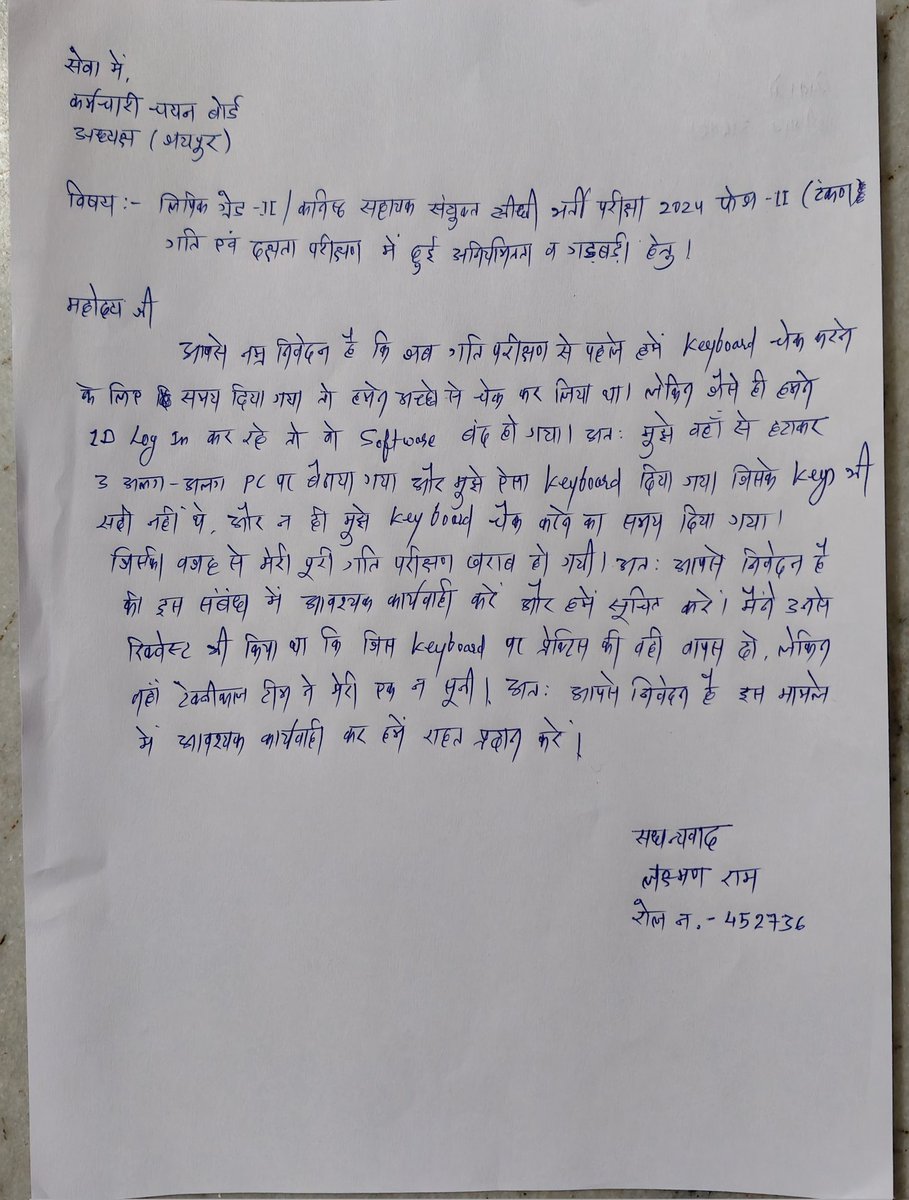 सेवा में,
कर्मचारी चयन बोर्ड
अध्यक्ष (जयपुर)
विषय :- लिपिक ग्रेड-II / कनिष्ठ सहायक संयुक्त सीधी भर्ती परीक्षा 2024 फेज-II (टंकण
गति एवं दक्षता परीक्षण में हुई अनियमितता व गड़बड़ी हेतु।
महोदय जी
आपसे नम्र निवेदन है कि जब गति परीक्षण से पहले हमें Keyboard चेक करने
के लिए समय दिया गया तो हमने अच्छे से चेक कर लिया था। लेकिन जैसे ही हमने
ID Log In कर रहे तो वो Software बंद हो गया। अतः मुझे वहाँ से हटाकर
3 अलग-अलग PC पर बैठाया गया और मुझे ऐसा Keyboard दिया गया जिसके Keys भी
सही नहीं थे, और न ही मुझे Keyboard चैक करने का समय दिया गया।
जिसकी वजह से मेरी पूरी गति परीक्षण खराब हो गयी। अतः आपसे निवेदन है
की इस संबंध में आवश्यक कार्यवाही करें और हमें सूचित करें। मैंने उनसे
रिक्वेस्ट भी किया था कि जिस Keyboard पर प्रेक्टिस की वही वापस दो, लेकिन
वहाँ टेक्नीकल टीम ने मेरी एक न सूनी। अतः आपसे निवेदन है इस मामले
में आवश्यक कार्यवाही कर हमें राहत प्रदान करें।
सधन्यवाद
लक्ष्मण राम
रोल न. - 452736